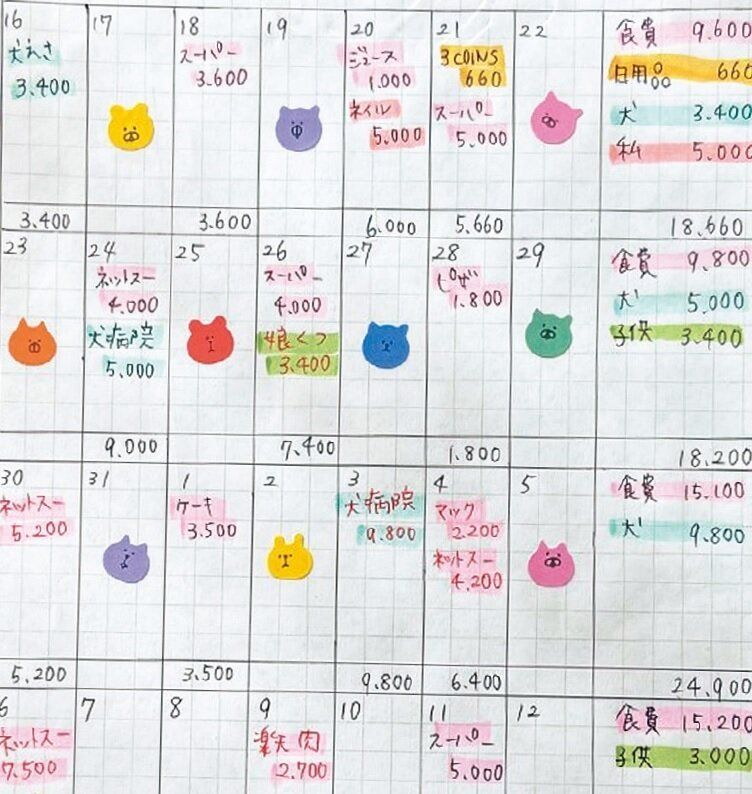 16 17 18 19 20 21 22
犬えさ
3.400
スーパー
3.600
ジュース
1.000
ネイル
5.000
3COINS
660
スーパー
5.000
食費 9.600
日用品 660
犬 3.400
私 5.000
3.400 3.600 6.000 5.660 18.660
23 24 25 26 27 28 29
ネットスー
4.000
犬病院
5.000
スーパー
4.000
娘くつ
3.400
ピザ
1.800
食費 9.800
犬 5.000
子供 3.400
9.000 7.400 1.800 18.200
30 31 1 2 3 4 5
ネットスー
5.200
ケーキ
3.500
犬病院
9.800
マック
2.200
ネットスー
4,200
食費 15.100
犬 9.800
5.200 3.500 9.800 6.400 24.900
6 7 8 9 10 11 12
ネットスー
7.500
楽天肉
2.700
スーパー
5.000
食費 15.200
子供 3.000